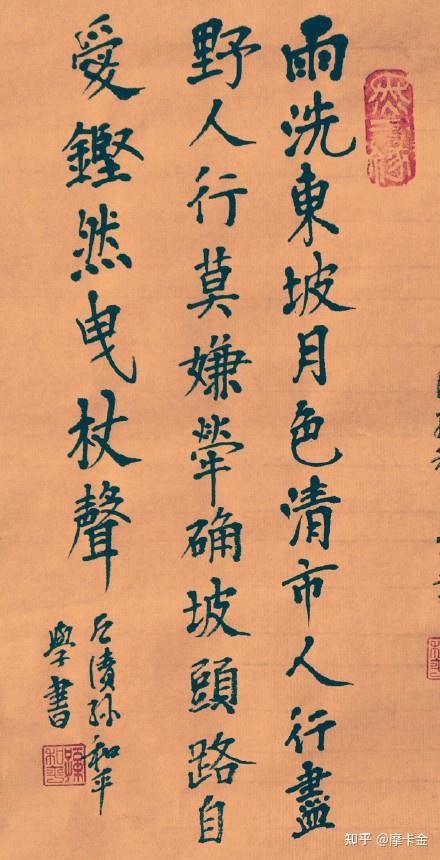 雨洗東坡月色清市人行盡
野人行莫嫌犖确坡頭路自
愛鏗然曳杖聲
孙和平
學書
知乎 @摩卡金